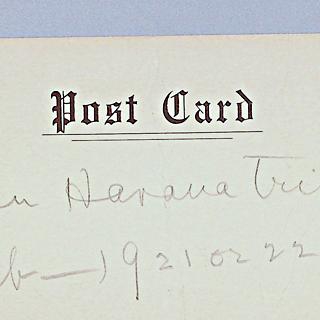 Post Card
Havana Tri
1921 or 22